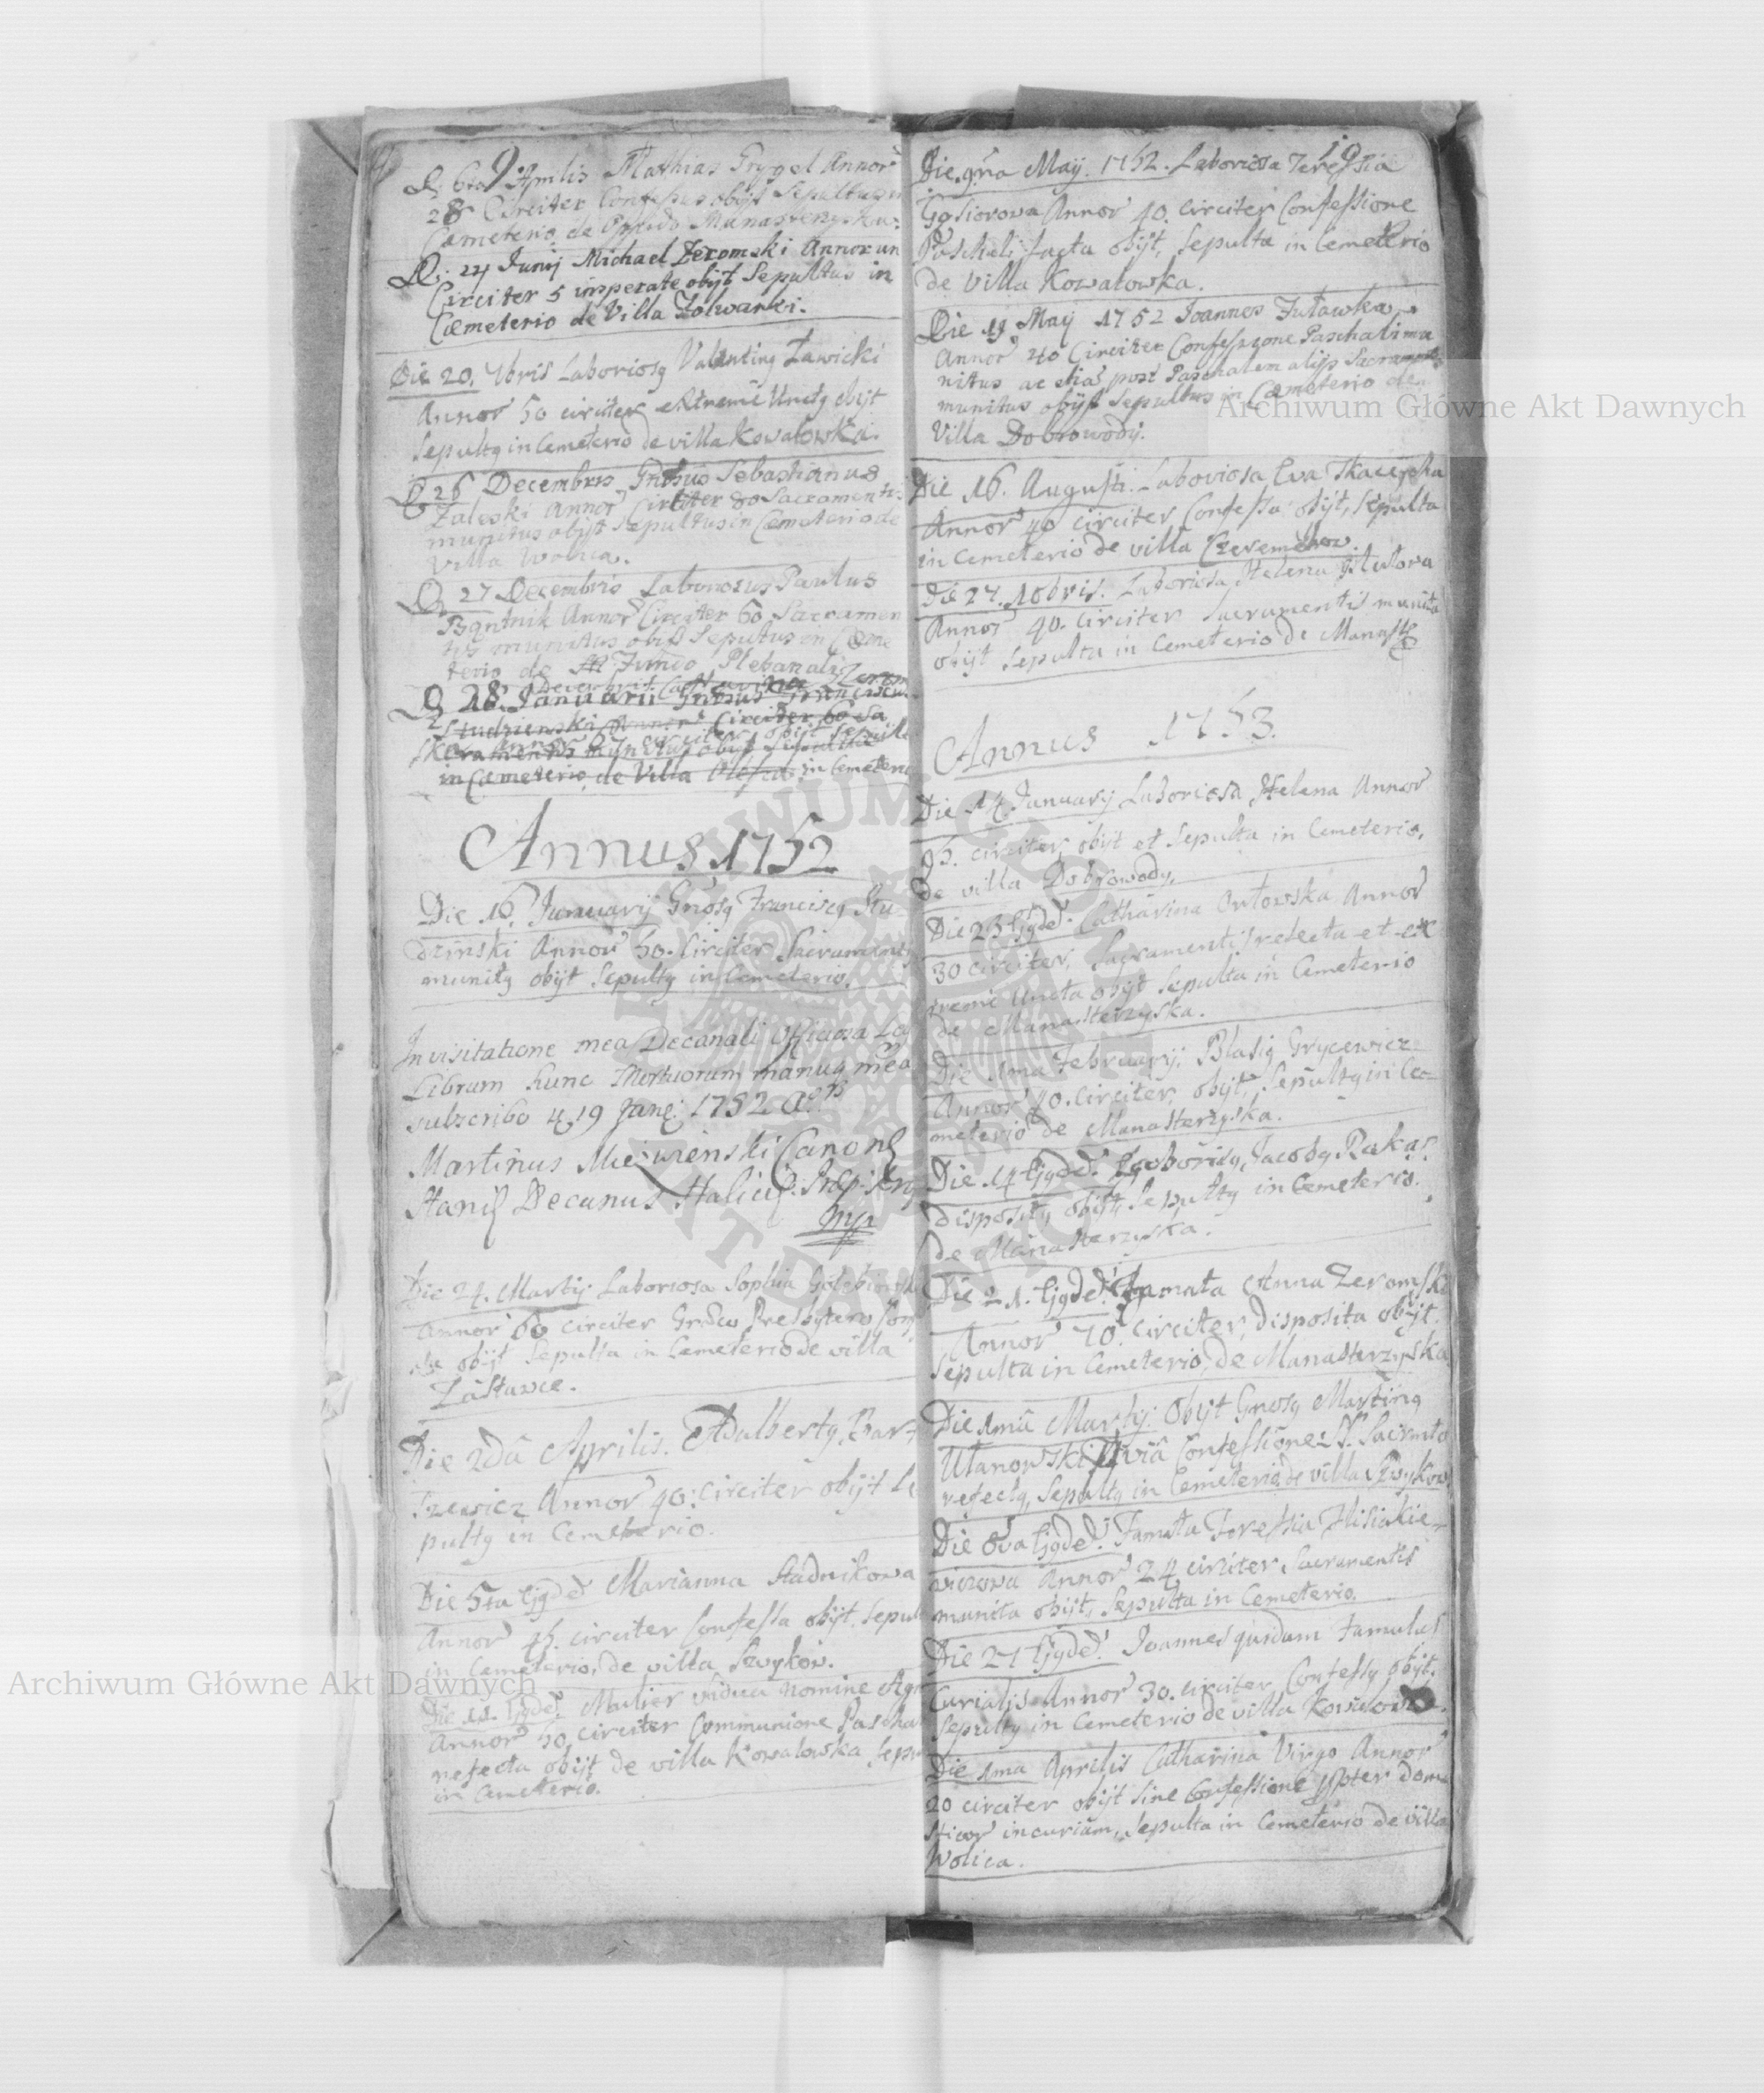 9
D. 6ta Aprilis Mathias Grygel Annor
28 Circiter Confessus obijt Sepultus in
Cæmeterio de Oppido Manasterzyska.
D. 24 Junij Michael Zeromski Annorum
Circiter 5 insperate obijt Sepultus in
Cæmeterio de Villa Folwarki.
Die 20. 7bris Laboriosq Valentinq Ławicki
Annor 50 circiter extreme Unctq obijt
Sepultq in Cemeterio de villa Kowalowka.
D 26 Decembris Gnosus Sebastianus
Zaleski Annor Circiter 80 Sacramentis
munitus obijt Sepultus in Cæmeterio de
Villa Wolica.
D 27 Decembris Laboriosus Paulus
Annor Circiter 60 Sacramen
tis munitus obijt Sepultus in Cæme
terio de Fundo Plebanali
D 28 Januarii Gnosus
Studzienski Annor Circiter 60 Sa
munitus obijt
in Cæmeterio de Villa in Cemeterio
Annus 1752
Die 16. Januarij Gnosq Franciscq Stu
dzinski Annor 50. Circiter Sacramentis
munitq obijt Sepultq in Cemeterio.
In visitatione mea Decanali Officiosa
Librum hunc Mortuorum manuq mea
subscribo 19 1752
Martinus Canon
Stani Decanus Halici
mp
Die 24. Martij Laboriosa Sophia
Annor 60 circiter Græco Presbytero
obijt Sepulta in Cemeterio de villa
Zastawce.
Die 2dâ Aprilis. Adalbertq Bart
szewicz Annor 40. circiter obijt Se
pultq in Cemeterio.
Die 5ta Ejgded Marianna Stadnikowa
Annor 45. circiter Confessa obijt. Sepul
in Cemeterio, de villa Szwykow.
Die 11 Ejgded. Mulier vidua nomine Agn
Annor 50. circiter Communione Pascha
refecta obijt de villa Kowalowka Sepu
in Cemeterio.
19
Die 9na Maij. 1752. Laboriosa Teressia
Gąsiorowa Annor 40. circiter Confessione
Paschali facta obijt, Sepulta in Cemeterio
de Villa Kowalowka.
Die 11 Maij 1752 Joannes Zuławka
Annor 40 Circiter Confessione Paschali mu
nitus ac etia post Paschalem alijs Sacramentis
munitus obijt Sepultus in Cæmeterio de
Villa Dobrowody.
Die 16. Augusti. Laboriosa Eva Tkaczyska
Annor 40 circiter Confessa, obijt, Sepulta
in Cemeterio de villa Czeremchow.
Die 27. 10bris. Laboriosa Helena
Annor 40. circiter Sacramentis munita
obijt Sepulta in Cemeterio de Manast
Annus 1753.
Die 14 Januarij Laboriosa Helena Annor
95. circiter obijt et Sepulta in Cemeterio,
de villa Dobrowody.
Die 23 Ejgded. Catharina Orłowska Annor
30 circiter, Sacramentis refecta et ex
treme Uncta obijt Sepulta in Cemeterio
de Manasterzyska.
Die 1ma Februarij. Blasiq Grycewicz
Annor 40. circiter, obijt, Sepultq in Ce
meterio de Manasterzyska.
Die 14 Ejgded. Laboriosq Jacobq Rakas
dispositq obijt, Sepultq in Cemeterio.
de Manasterzyska.
Die 21. Ejgded. Famata Anna Zeromska
Annor 70. circiter, disposita obijt.
Sepulta in Cemeterio, de Manasterzyska.
Die 1mâ Martij. Obijt Gnosq Martinq
Ułanowski Prævia Confessione SS. Sacrmto
refectq, Sepultq in Cemeterio, de villa Szwykow
Die 8va Ejgded. Famata Teressia
wiczowa Annor 24 circiter Sacramentis
munita obijt, Sepulta in Cemeterio.
Die 27 Ejgded. Joannes quidam Famulus
Curialis Annor 30. circiter Confessq obijt.
Sepultq in Cemeterio de villa Kowalowka.
Die 1ma Aprilis Catharina Virgo Annor
20 circiter obijt sine Confessione ppter dome
sticor incuriam, Sepulta in Cemeterio de villa
Wolica.
Archiwum Główne Akt Dawnych
Archiwum Główne Akt Dawnych
ARCHIWUM GŁÓWNE AKT DAWNYCH